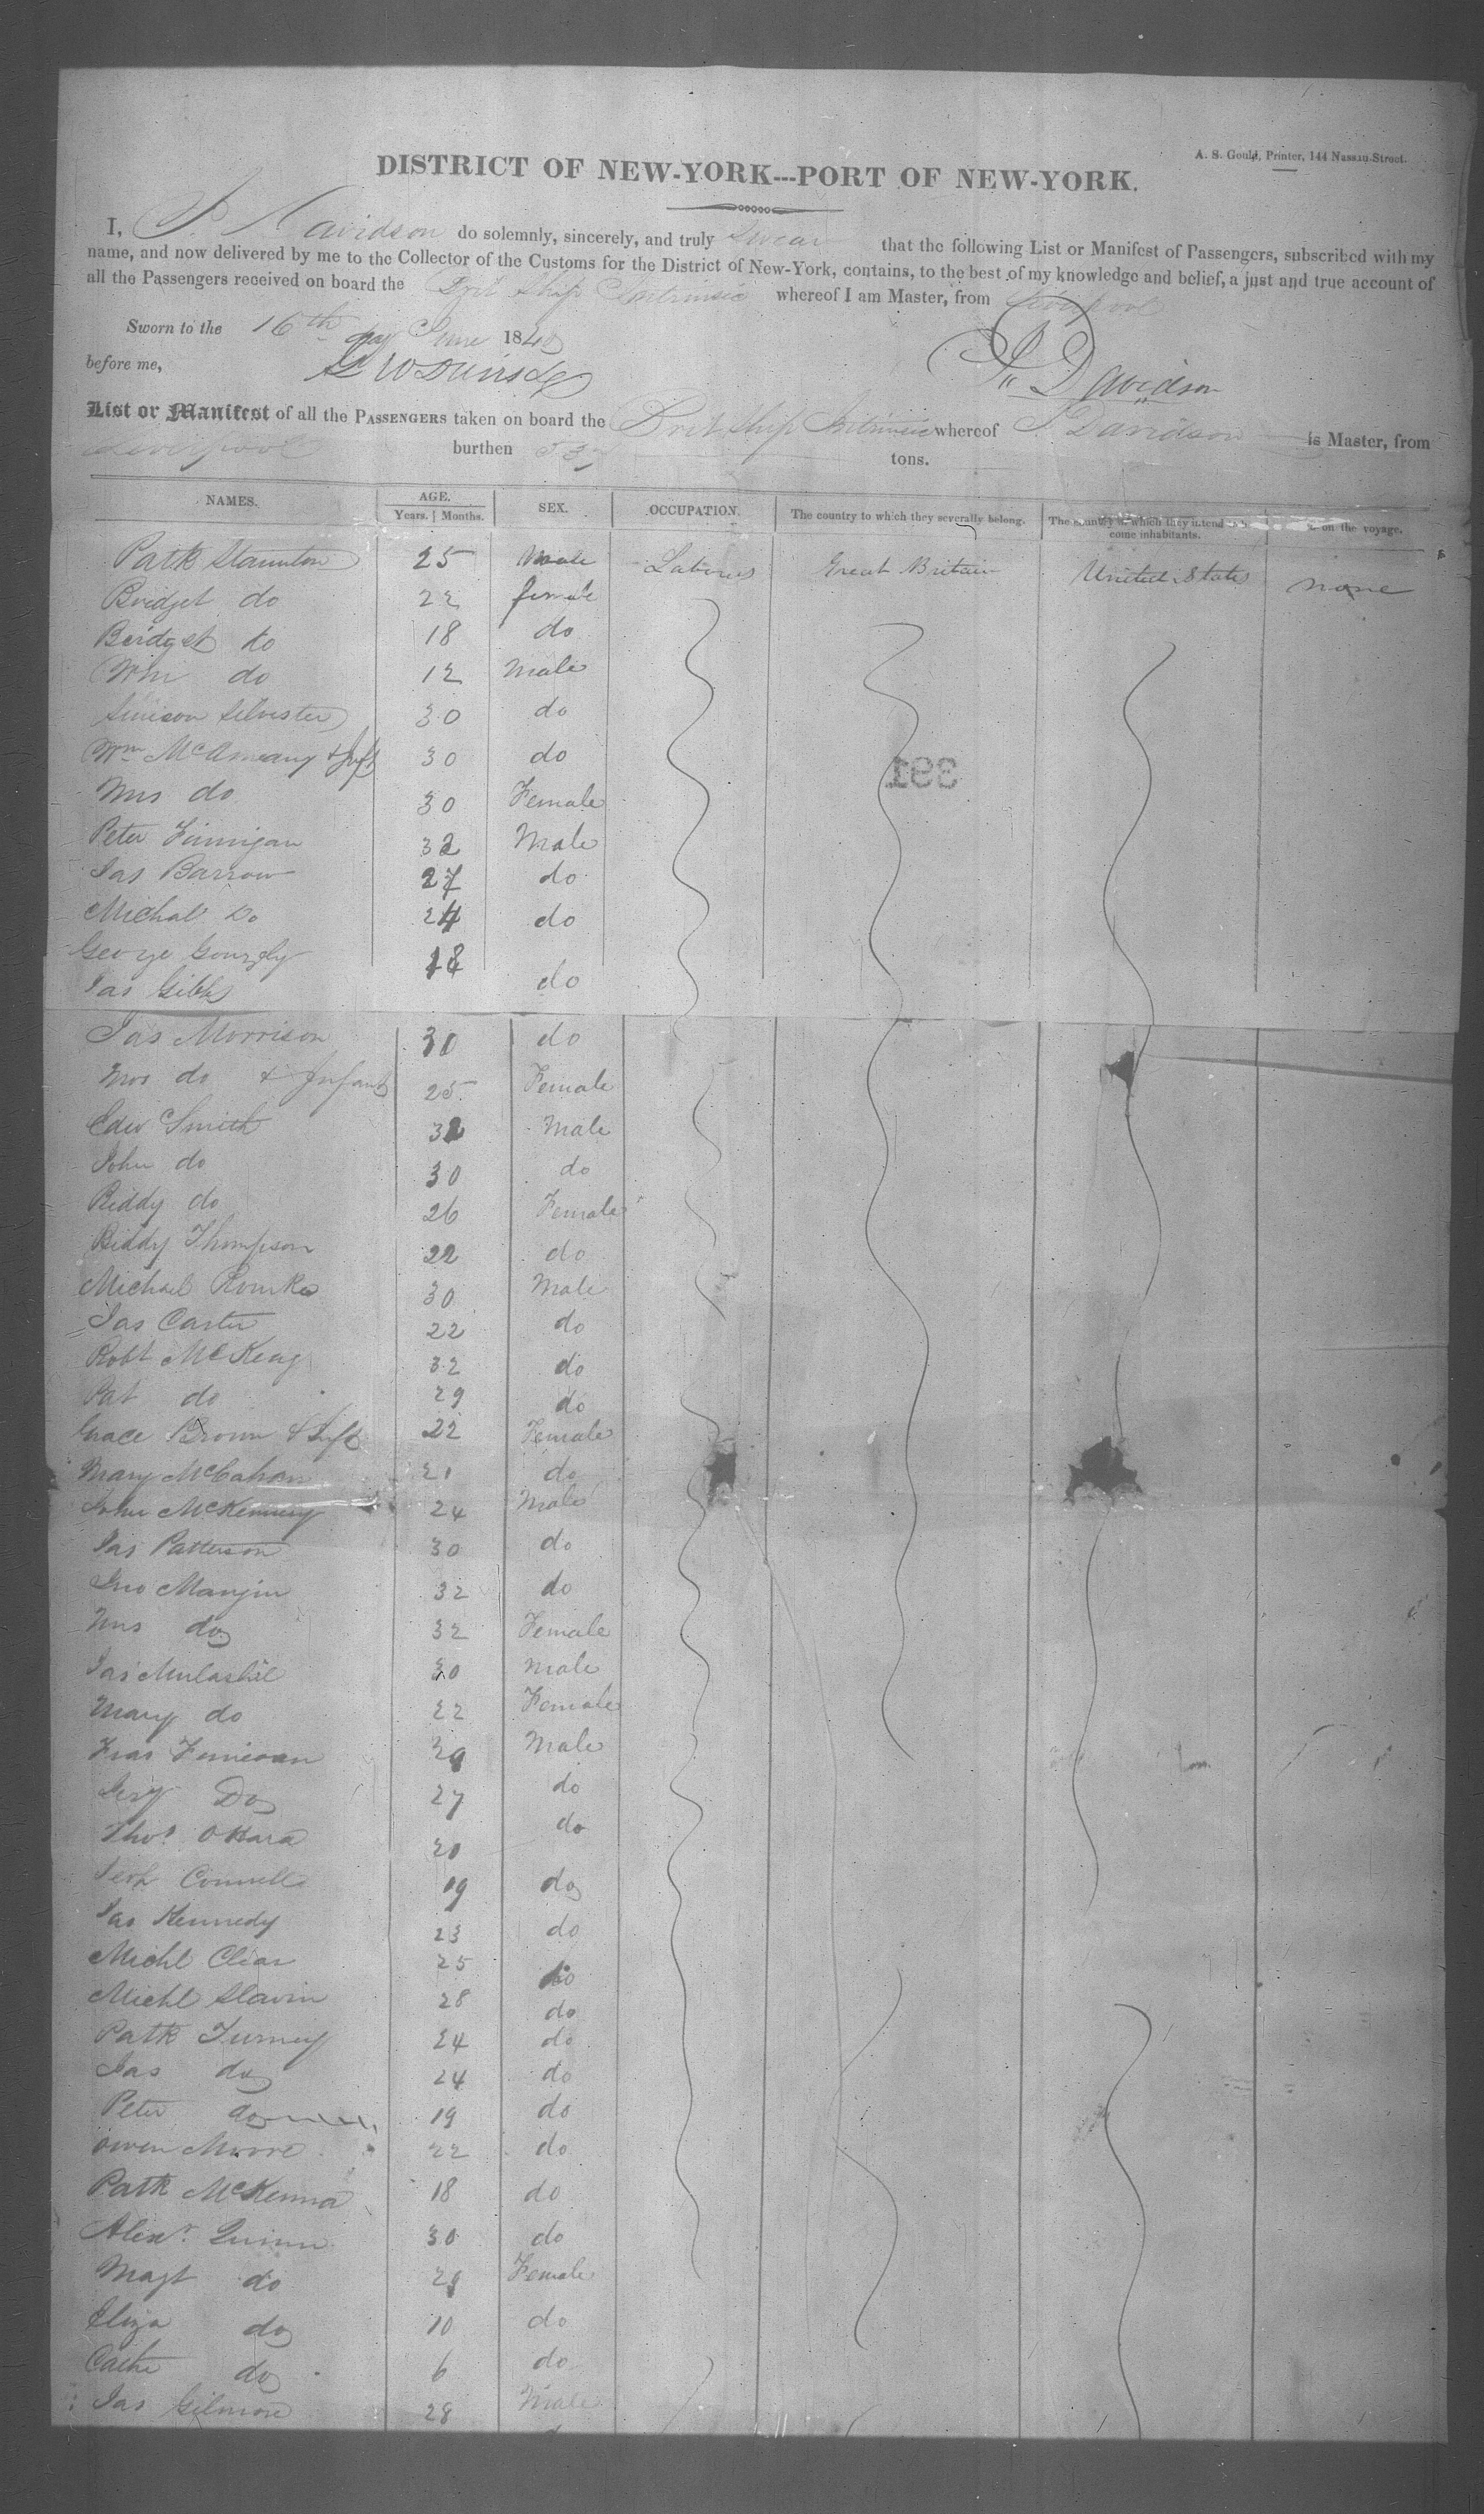 A. S. Gould, Printer, 144 Nassau-Street.
DISTRICT OF NEW-YORK---PORT OF NEW-YORK.
I, Davidson do solemnly, sincerely, and truly swear that the following List or Manifest of Passengers, subscribed with my
name, and now delivered by me to the Collector of the Customs for the District of New-York, contains, to the best of my knowledge and belief, a just and true account of
all the Passengers received on board the Brit Ship Intrinsic whereof I am Master, from Liverpool
Sworn to the 16th day June 1840
before me, Davidson
List or Manifest of all the PASSENGERS taken on board the Brit Ship Intrinsic whereof Davidson is Master, from
Liverpool burthen 537 tons.
NAMES. AGE. SEX. OCCUPATION. The country to which they severally belong. The country in which they intend come inhabitants. on the voyage.
Years. Months.
Patk Staunton 25 Male Laborers Great Britain United States none
Bridget do 22 female
Bridget do 18 do
Wm do 12 Male
Silvester 30 do
Wm 30 do
Mrs do 30 Female
Peter Finnigan 32 Male
Jas Barrow 27 do
Michal Do 24 do
George 18
Jas Gibbs do
Jas Morrison 30 do
Mrs do & Infant 25 Female
Edw Smith 32 Male
John do 30 do
Biddy do 26 Female
Biddy Thompson 22 do
Michael Rourke 30 Male
Jas Carter 22 do
Robt McKeag 32 do
Pat do 29 do
Grace Brown & Inft 22 Female
Mary McCahan 21 do
John McKenney 24 Male
Jas Patterson 30 do
Jno Mangin 32 do
Mrs do 32 Female
Jas 30 Male
Mary do 22 Female
Fras Male
Do 27 do
Thos OHara 20 do
Connell 19 do
Jas Kennedy 23 do
Michl 25 do
Michl Slavin 28 do
Patk Turney 24 do
Jas do 24 do
Peter do 19 do
Owen Moore 22 do
Patk McKenna 18 do
Alexr Quinn 30 do
Magt do Female
Eliza do 10 do
Cathe do 6 do
Jas Gilmore 28 Male